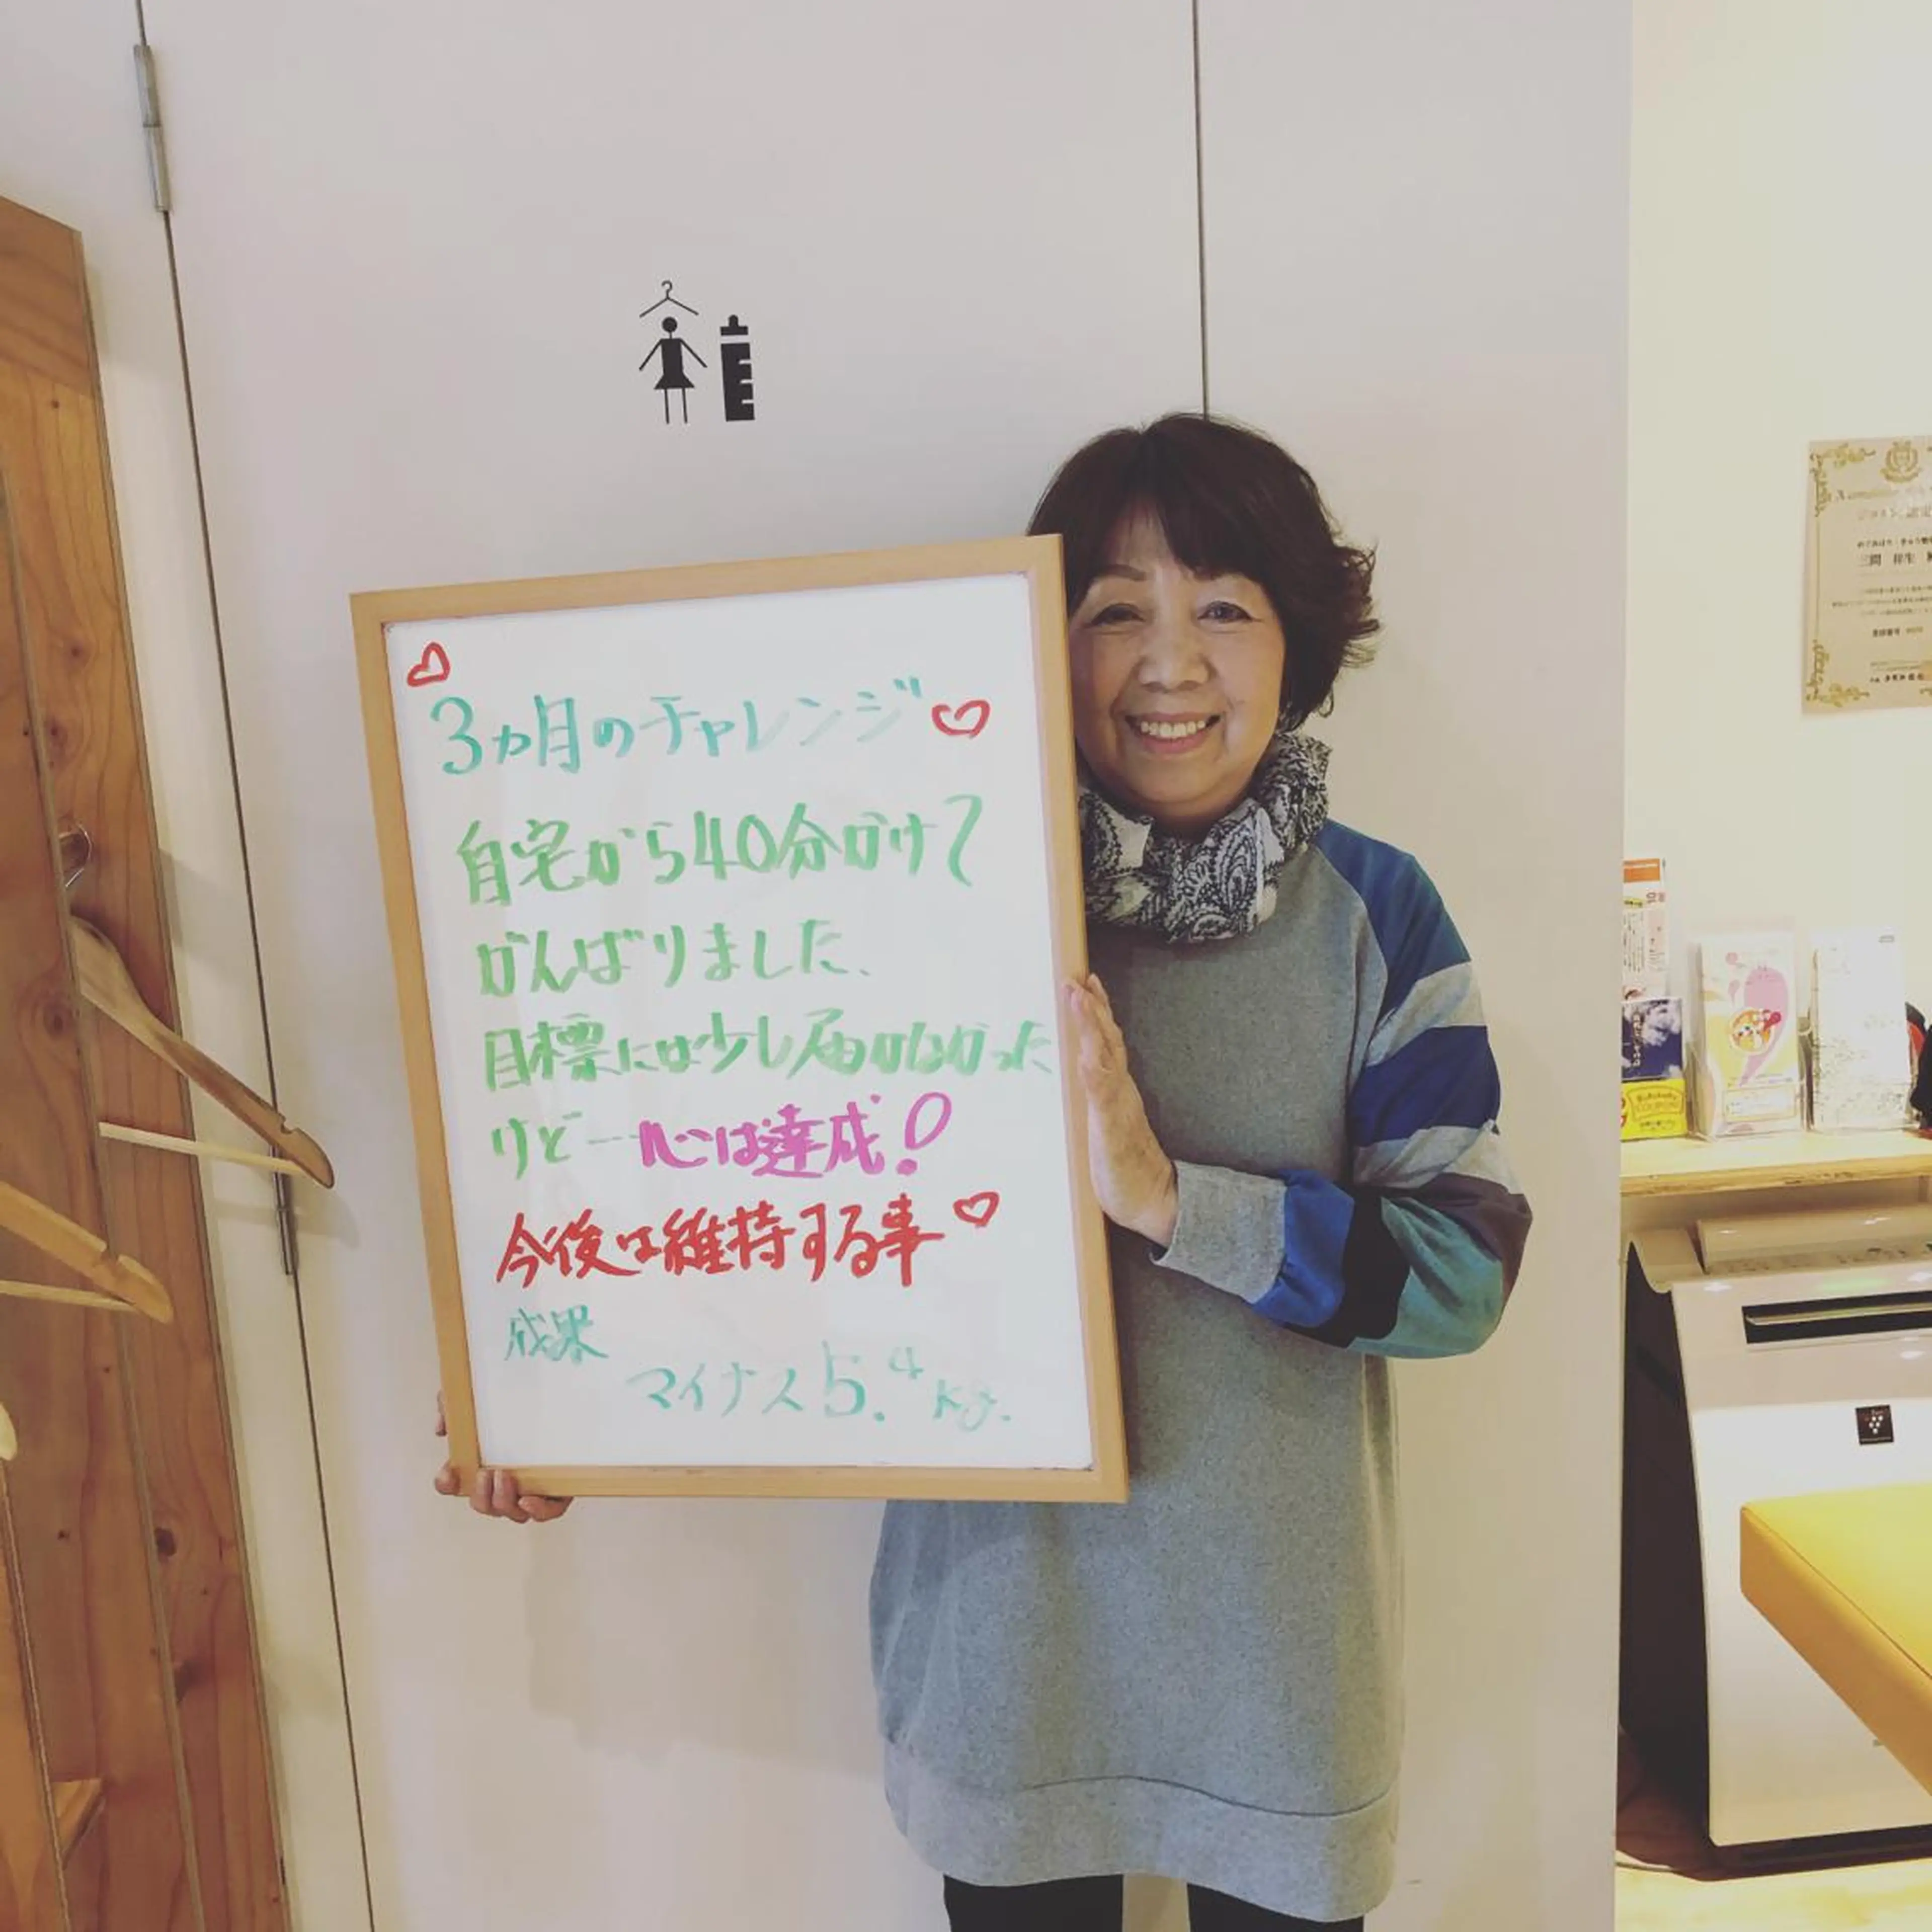 3ヵ月のチャレンジ
自宅から40分かけて
がんばりました、
目標には少し届かなかった
けど一心は達成!
今後は維持する事
成果
マイナス5.4kg.
三間
COUPON